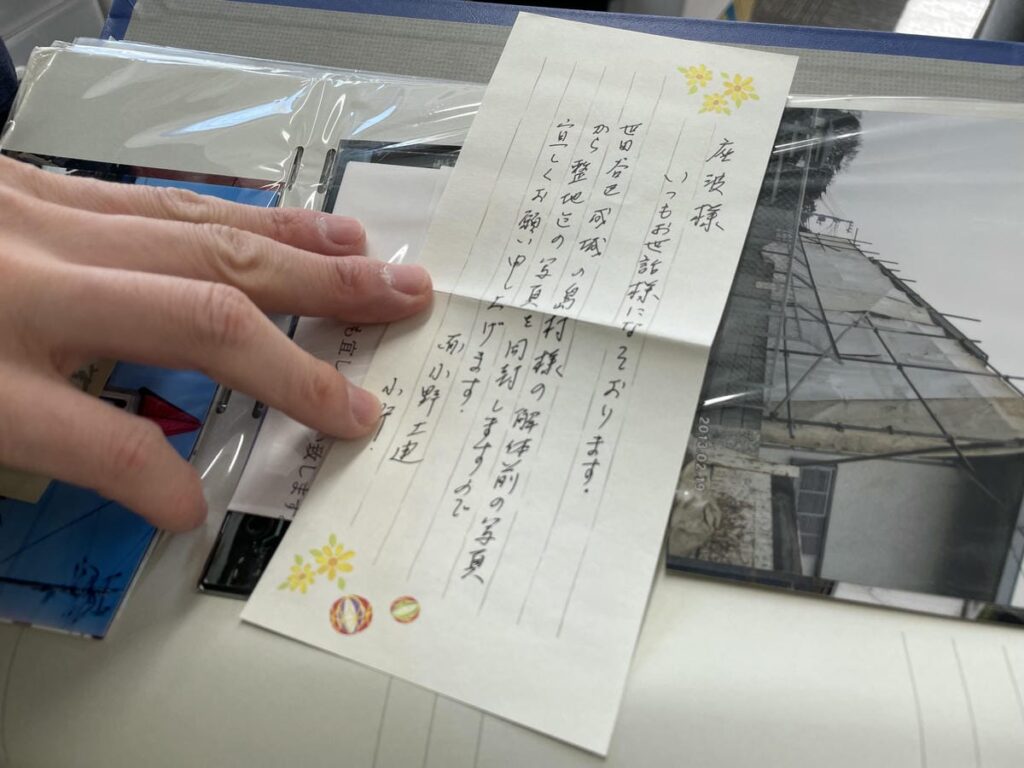 座波様
いつもお世話様になっております。
世田谷区成城の島村様の解体前の写真
から整地迄の写真を同封しますので
宜しくお願い申し上げます。
小野工建
小野
も宜し
い致します
2013.02.10